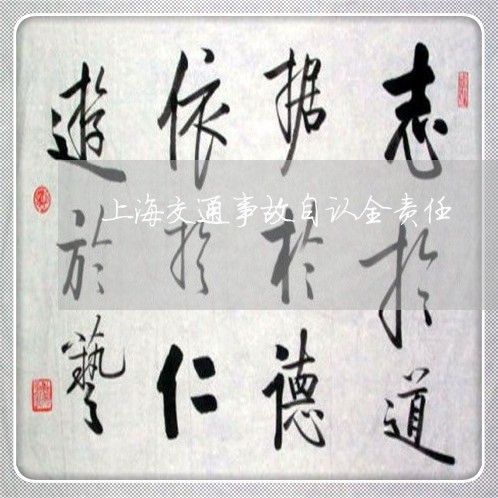 志於道
据於德
依於仁
遊於藝
上海交通事故自认全责任